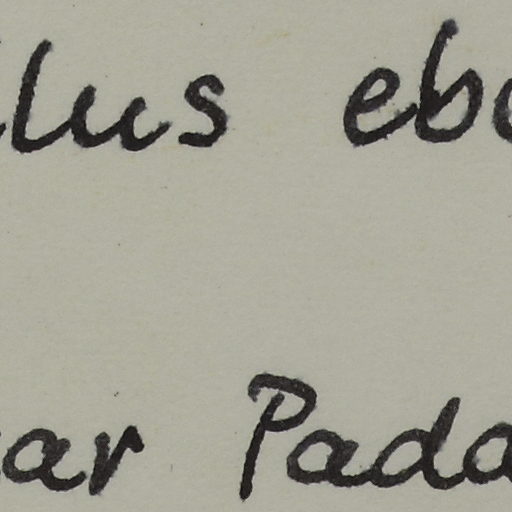 lus eb
ar Pada